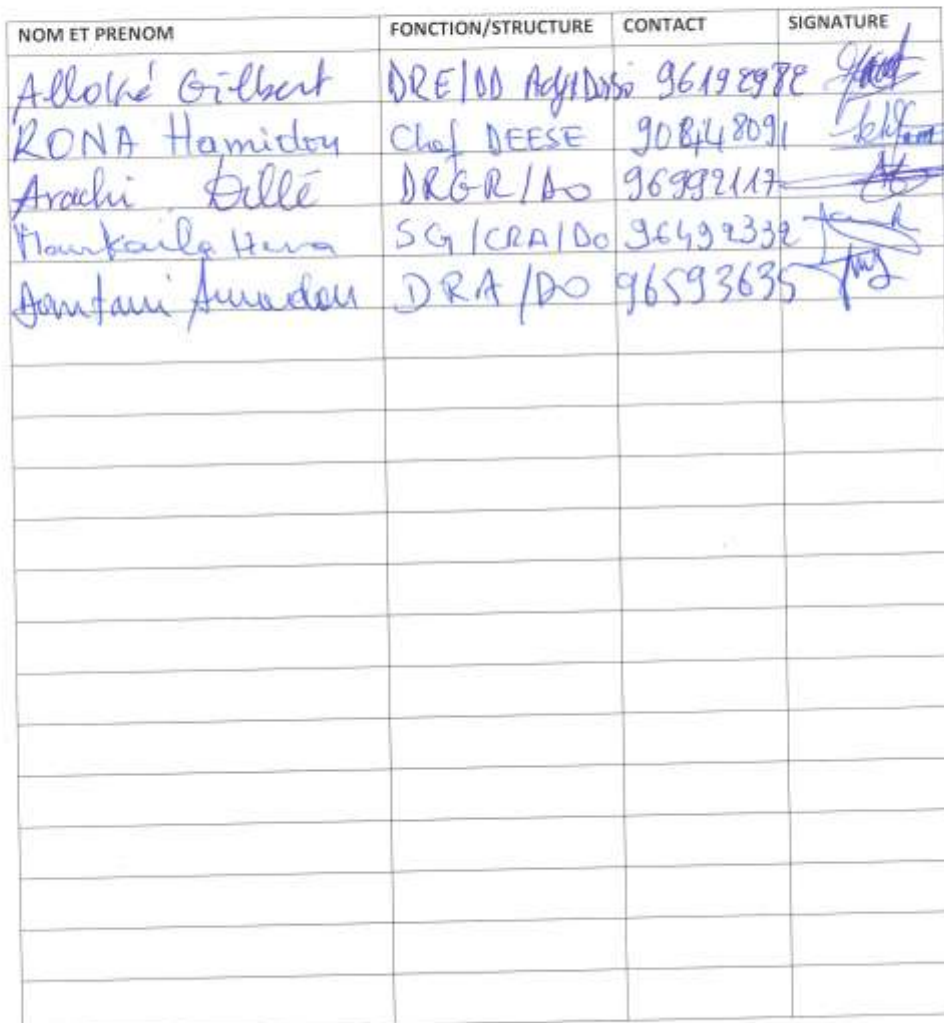 NOM ET PRENOM FONCTION/STRUCTURE CONTACT SIGNATURE
Alloké Gilbert DRE/DD 96192982
RONA Hamidou Chef DEESE 90848091
Arachi Dillé DRGR/DO 96992117
SG/CRA/Do 96492332
Amadou DRA/DO 96593635